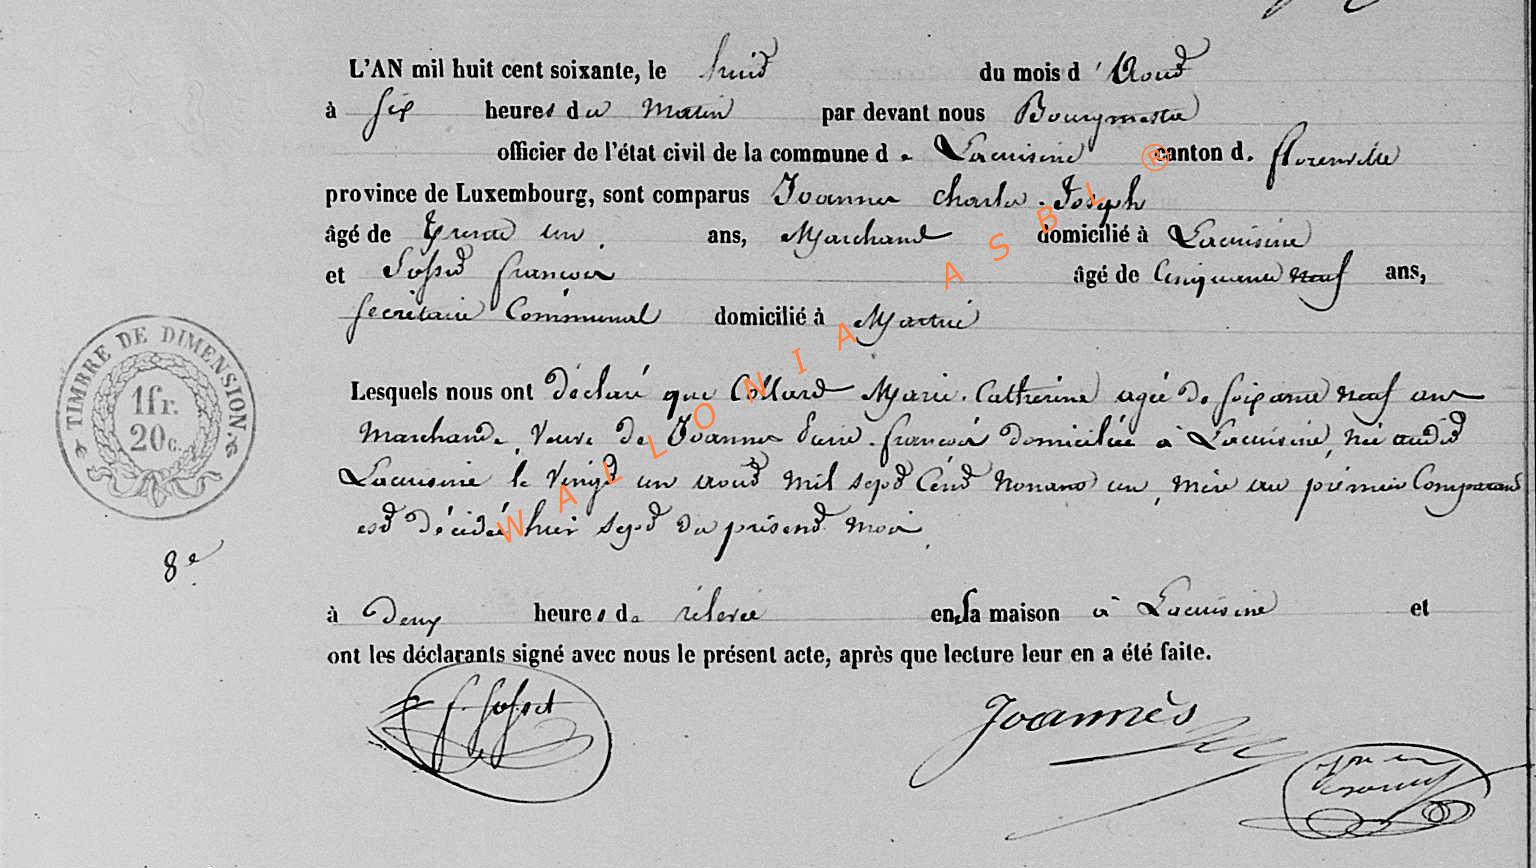 L'AN mil huit cent soixante, le huit du mois d'Aout
à six heures du matin par devant nous Bourgmestre
officier de l'état civil de la commune de Lacuisine canton d. florenville
province de Luxembourg, sont comparus Joannes Charles Joseph
âgé de trente un ans, Marchand domicilié à Lacuisine
et Sosset françois âgé de Cinquante neuf ans,
secrétaire Communal domicilié à Martué
TIMBRE DE DIMENSION
1fr.
20c.
Lesquels nous ont déclaré que Collard Marie Catherine agée de soixante neuf ans
Marchande veuve de Joannes françois domiciliée à Lacuisine, née audit
Lacuisine le vingt un aout mil sept Cent nonante un, mère au prémier Comparant
est décédée hier sept du présent mois
8e
à deux heures de rélevée en sa maison à Lacuisine et
ont les déclarants signé avec nous le présent acte, après que lecture leur en a été faite.
f. Sosset Joannès
WALLONIA ASBL ®